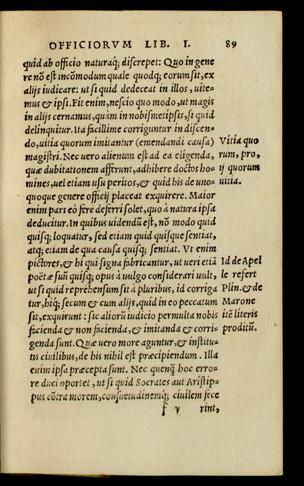 OFFICIORVM LIB. I. 89
quid ab officio naturaq; discrepet: Quo in gene
re nõ est incõmodum quale quodq; eorum sit, ex
alijs iudicare: ut si quid dedeceat in illos, uite-
mus & ipsi. Fit enim, nescio quo modo, ut magis
in alijs cernamus, quàm in nobismetipsis, si quid
delinquitur. Ita facillime corriguntur in discen-
do, uitia quorum imitantur (emendandi causa)
magistri. Nec uero alienum est ad ea eligenda,
quæ dubitationem afferunt, adhibere doctos ho-
mines, uel etiam usu peritos, & quid his de uno-
quoque genere officij placeat exquirere. Maior
enim pars eò ferè deferri solet, quò à natura ipsa
deducitur. In quibus uidendũ est, nõ modo quid
quisq; loquatur, sed etiam quid quisque sentiat,
atq; etiam de qua causa quisq; sentiat. Vt enim
pictores, & hi qui signa fabricantur, ut ueri etiã
poëtæ suũ quisq; opus à uulgo considerari uult,
ut si quid reprehensum sit à pluribus, id corriga
tur, hiq; secum & cum alijs, quid in eo peccatum
sit, exquirunt: sic aliorũ iudicio permulta nobis
facienda & non facienda, & imitanda & corri-
genda sunt. Quæ uero more aguntur, & institu-
tis ciuilibus, de his nihil est præcipiendum. Illa
enim ipsa præcepta sunt. Nec quenq̃ hoc erro-
re duci oportet, ut si quid Socrates aut Aristip-
pus cõtra morem, consuetudinemq; ciuilem fece
f v rint,
Vitia quo
rum, pro,
ij quorum
uitia.
Id de Apel
le refert
Plin. & de
Marone
itẽ literis
proditũ.